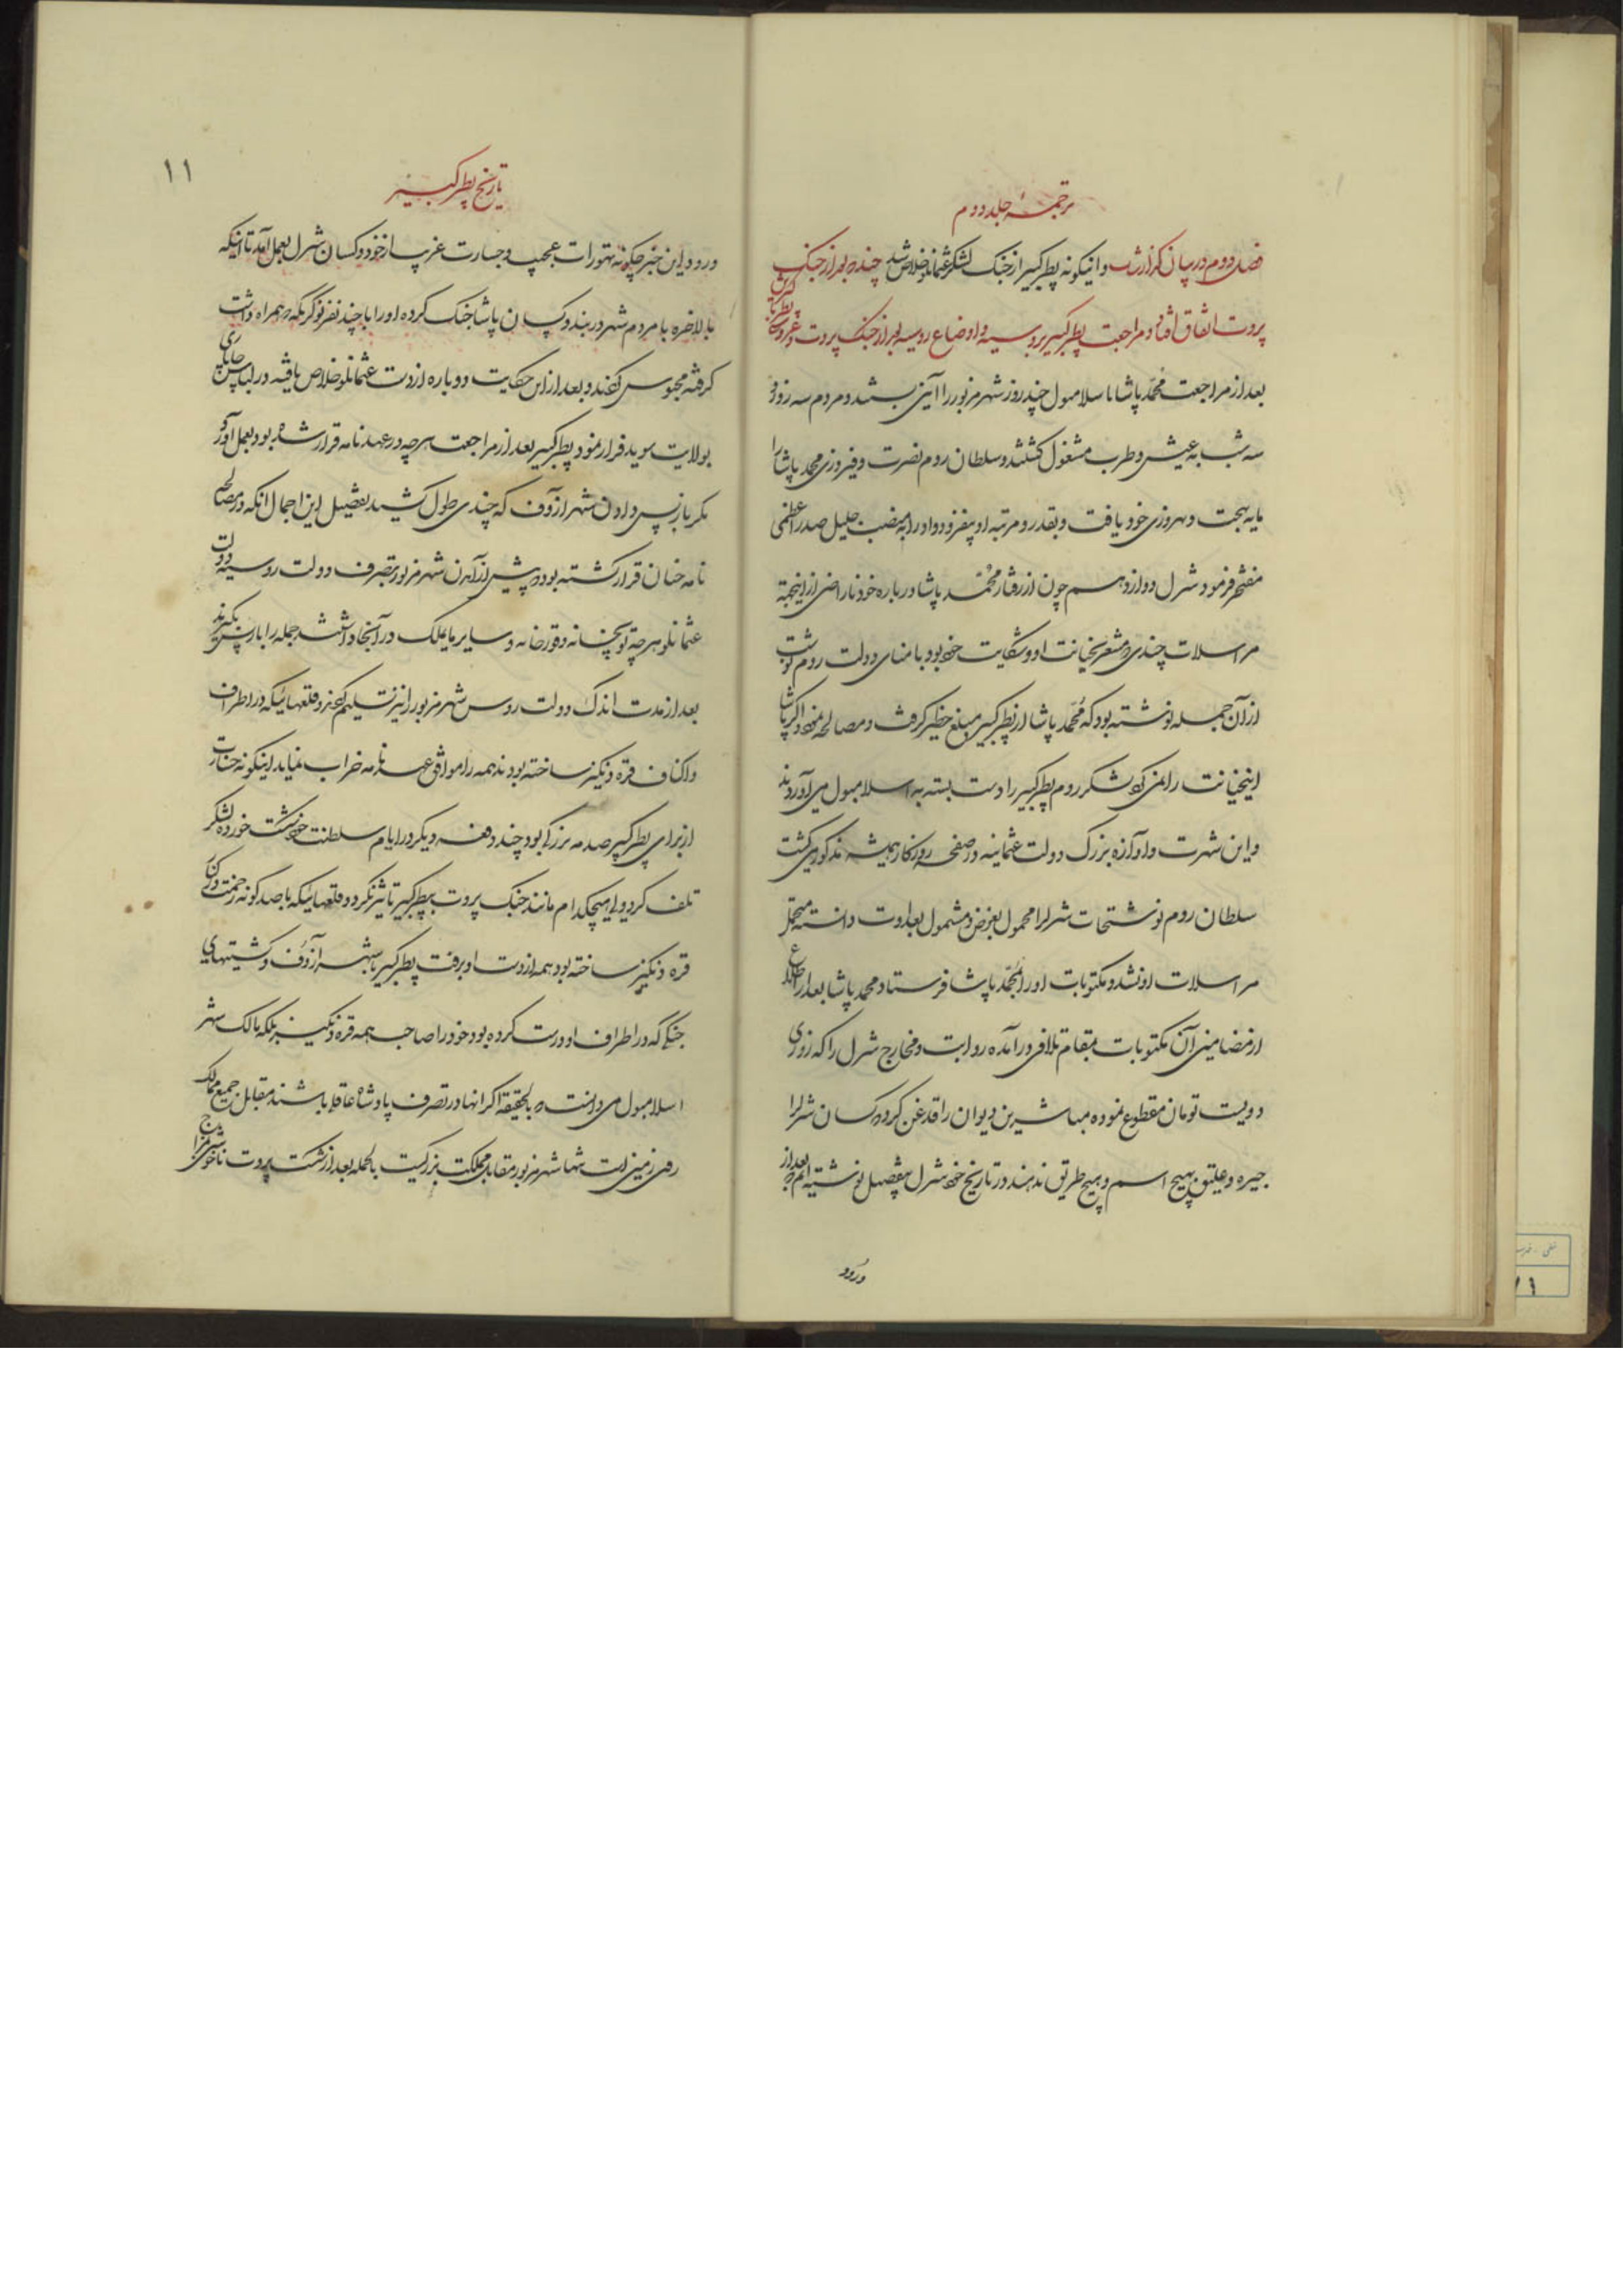 ترجمهٔ جلد دوم
فصل دوم در بیان گزارشات و اینگونه پطر کبیر از جنگ لشکر عثمانلو خلاص شد چندیکه بعد از جنگ
پروت اتفاق افتاد و مراجعت پطر کبیر بروسیه و اوضاع روسیه بعد از جنگ پروت و عروسی
بعد از مراجعت محمد پاشا باسلامبول چند روز شهر مزبور را آئین بستند و مردم سه روز و
سه شب به عیش و طرب مشغول گشتند و سلطان روم نصرت و فیروزی محمد پاشا را
مایه بهجت و بهروزی خود یافت و بقدر و مرتبه او بیفزود و او را به منصب جلیل صدر اعظمی
مفتخر فرمود شرل دوازدهم چون از رفتار محمد پاشا درباره خود ناراضی از اینجهة
مراسلات چندی که مشعر بخیانت او و شکایت خود بود با منای دولت روم نوشت
از آن جمله نوشته بود که محمد پاشا از پطر کبیر مبلغ خطیر گرفت و مصالحه نمود اگر پاشا
این خیانت را نمی کرد لشکر روم پطر کبیر را دست بسته به اسلامبول می آوردند
و این شهرت و آوازه بزرگ دولت عثمانیه در صفحه روزگار همیشه مذکور می گشت
سلطان روم نوشتجات شرل را محمول بغرض و مشمول بعداوت دانسته متحمل
مراسلات او نشد و مکتوبات او را بمحمد پاشا فرستاد محمد پاشا بعد از اطلاع
از مضامین آن مکتوبات بمقام تلافی درآمده رواتب و مخارج شرل را که روزی
دویست تومان مقطوع نموده مباشرین دیوان را قدغن کرد که کسان شرل را
جیره و علیق بهیچ اسم و بهیچ طریق ندهند در تاریخ خود شرل بتفصیل نوشته ام که بعد از
ورود
۱۱
تاریخ پطر کبیر
ورود این خبر چگونه تهورات عجیب و جسارت غریب از خود و کسان شرل بعمل آمد تا اینکه
بالاخره با مردم شهر در بند و کسان پاشا جنگ کرده او را با چند نفر نوکر که همراه داشت
گرفته محبوس کردند و بعد از این حکایت دوباره از دست عثمانلو خلاص یافته در لباس چاپاری
بولایت سوید فرار نمود پطر کبیر بعد از مراجعت هر چه در عهدنامه قرار شده بود بعمل آورد
مگر باز پس دادن شهر ازوف که چندی طول کشید تفصیل این اجمال آنکه در مصالحه
نامه چنان قرار گشته بود که پیش از آمدن شهر مزبور بتصرف دولت روسیه دولت
عثمانلو هر چه توپخانه و قورخانه و سایر مایملک در آنجا داشت جمله را باز پس بگیرند
بعد از مدت اندک دولت روس شهر مزبور را نیز تسلیم کند و قلعهائیکه در اطراف
و اکناف قره دنگیز ساخته بودند همه را موافق عهدنامه خراب نماید اینگونه خسارت
از برای پطر کبیر صدمه بزرگی بود چند دفعه دیگر در ایام سلطنت خود شکست خورده لشکر
تلف کرد ولی هیچکدام مانند جنگ پروت بپطر کبیر تاثیر نکرد و قلعهائیکه با صد گونه زحمت در کنار
قره دنگیز ساخته بود همه از دست او برفت پطر کبیر با شهر ازوف و کشتیهای
جنگی که در اطراف او درست کرده بود خود را صاحب همه قره دنگیز بلکه مالک شهر
اسلامبول می دانست که بالحقیقه اگر آنها در تصرف پادشاه عاقل باشند مقابل جمیع ممالک
روی زمینی است تنها شهر مزبور مقابل مملکت بزرگیست بالجمله بعد از شکست پروت ناخوشی مزاج